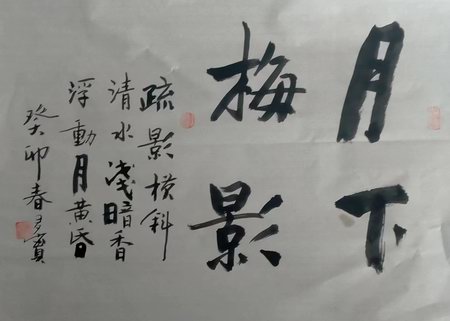 月下
梅影
疏影橫斜
清水淺暗香
浮動月黃昏
癸卯春